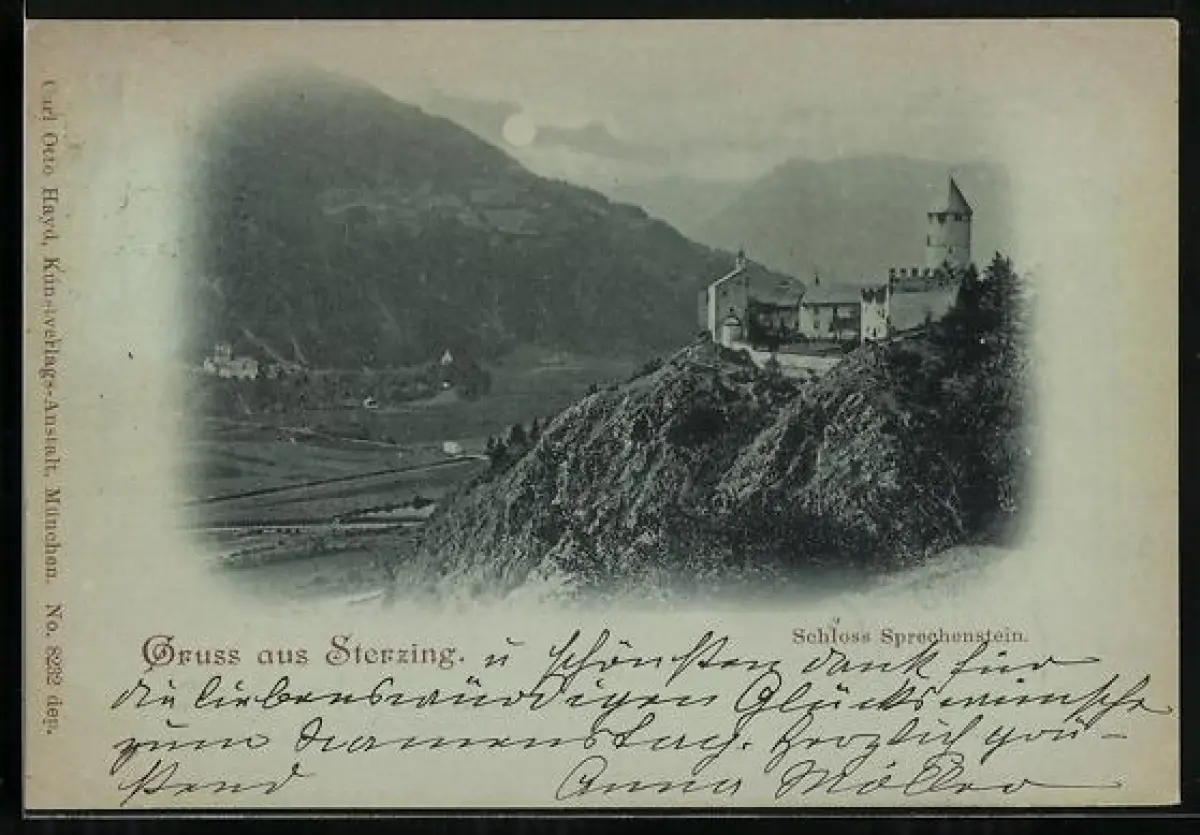 Carl Otto Hayd, Kunstverlags-Anstalt, München. No. 8232 dep.
Schloss Sprechenstein.
Gruss aus Sterzing. u schönsten dank für
die liebenswürdigen Glückswünsche
zum Namenstag. Herzlich grü-
ßend Anna Möller